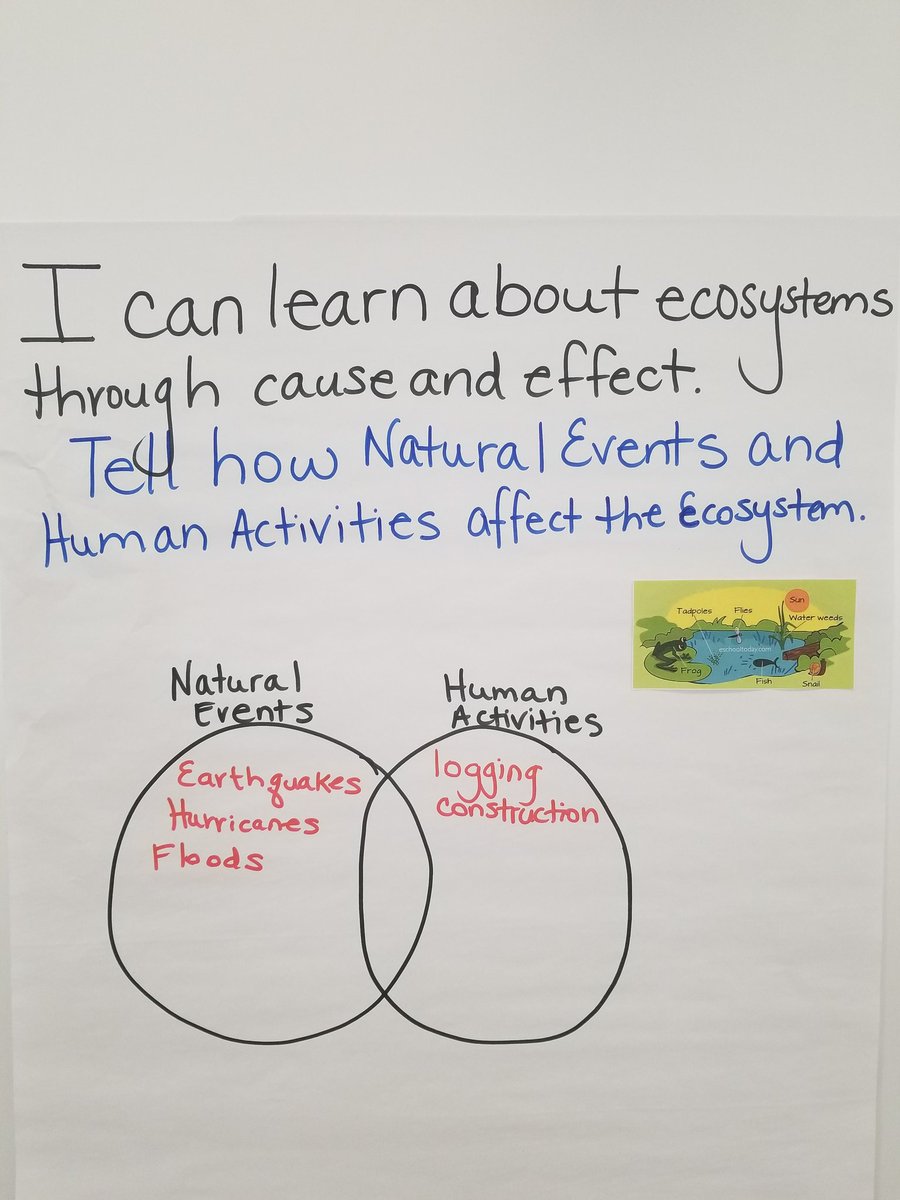 I can learn about ecosystems
through cause and effect.
Tell how Natural Events and
Human Activities affect the Ecosystem.
Sun
Tadpoles
Flies
Water weeds
eschooltoday.com
Frog
Fish
Snail
Natural
Events
Human
Activities
Earthquakes
Hurricanes
Floods
logging
construction